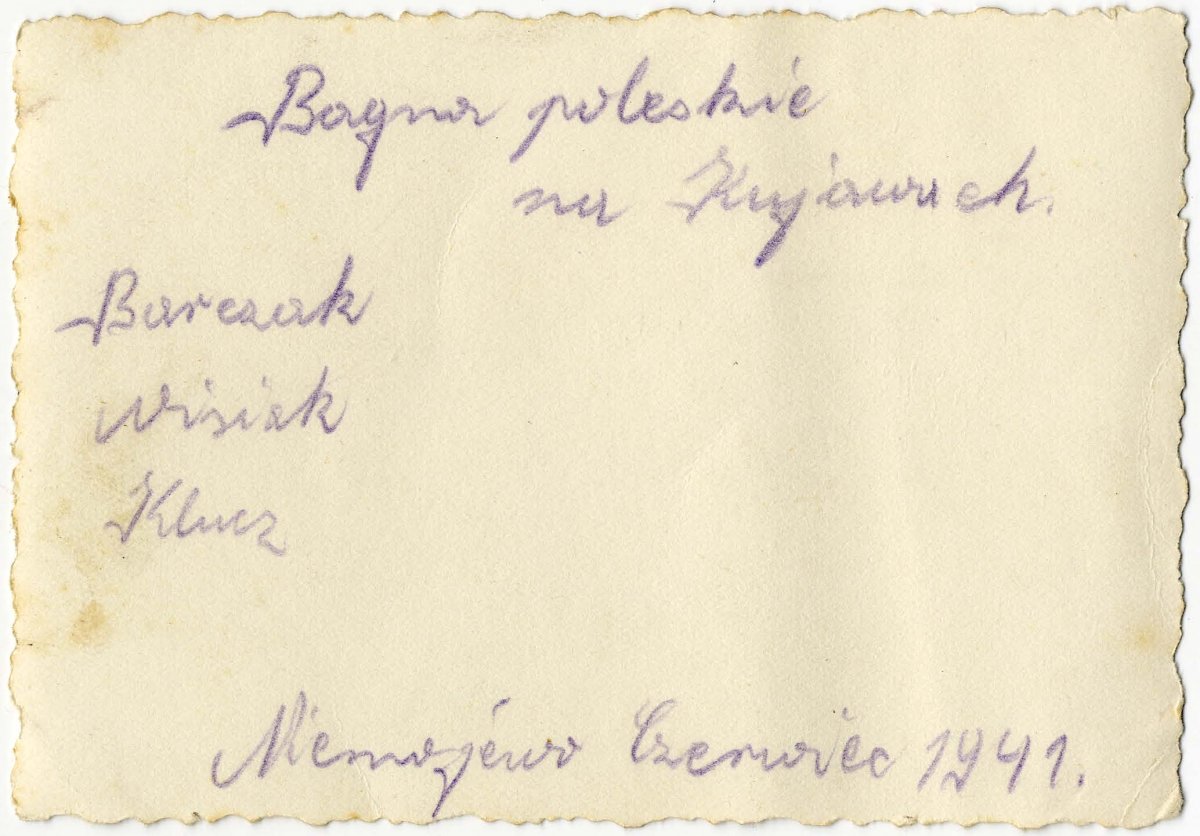 Bagna poleskie
na Kujawach.
Barczak
Wisiak
Klucz
Niemojewo Czerwiec 1941.